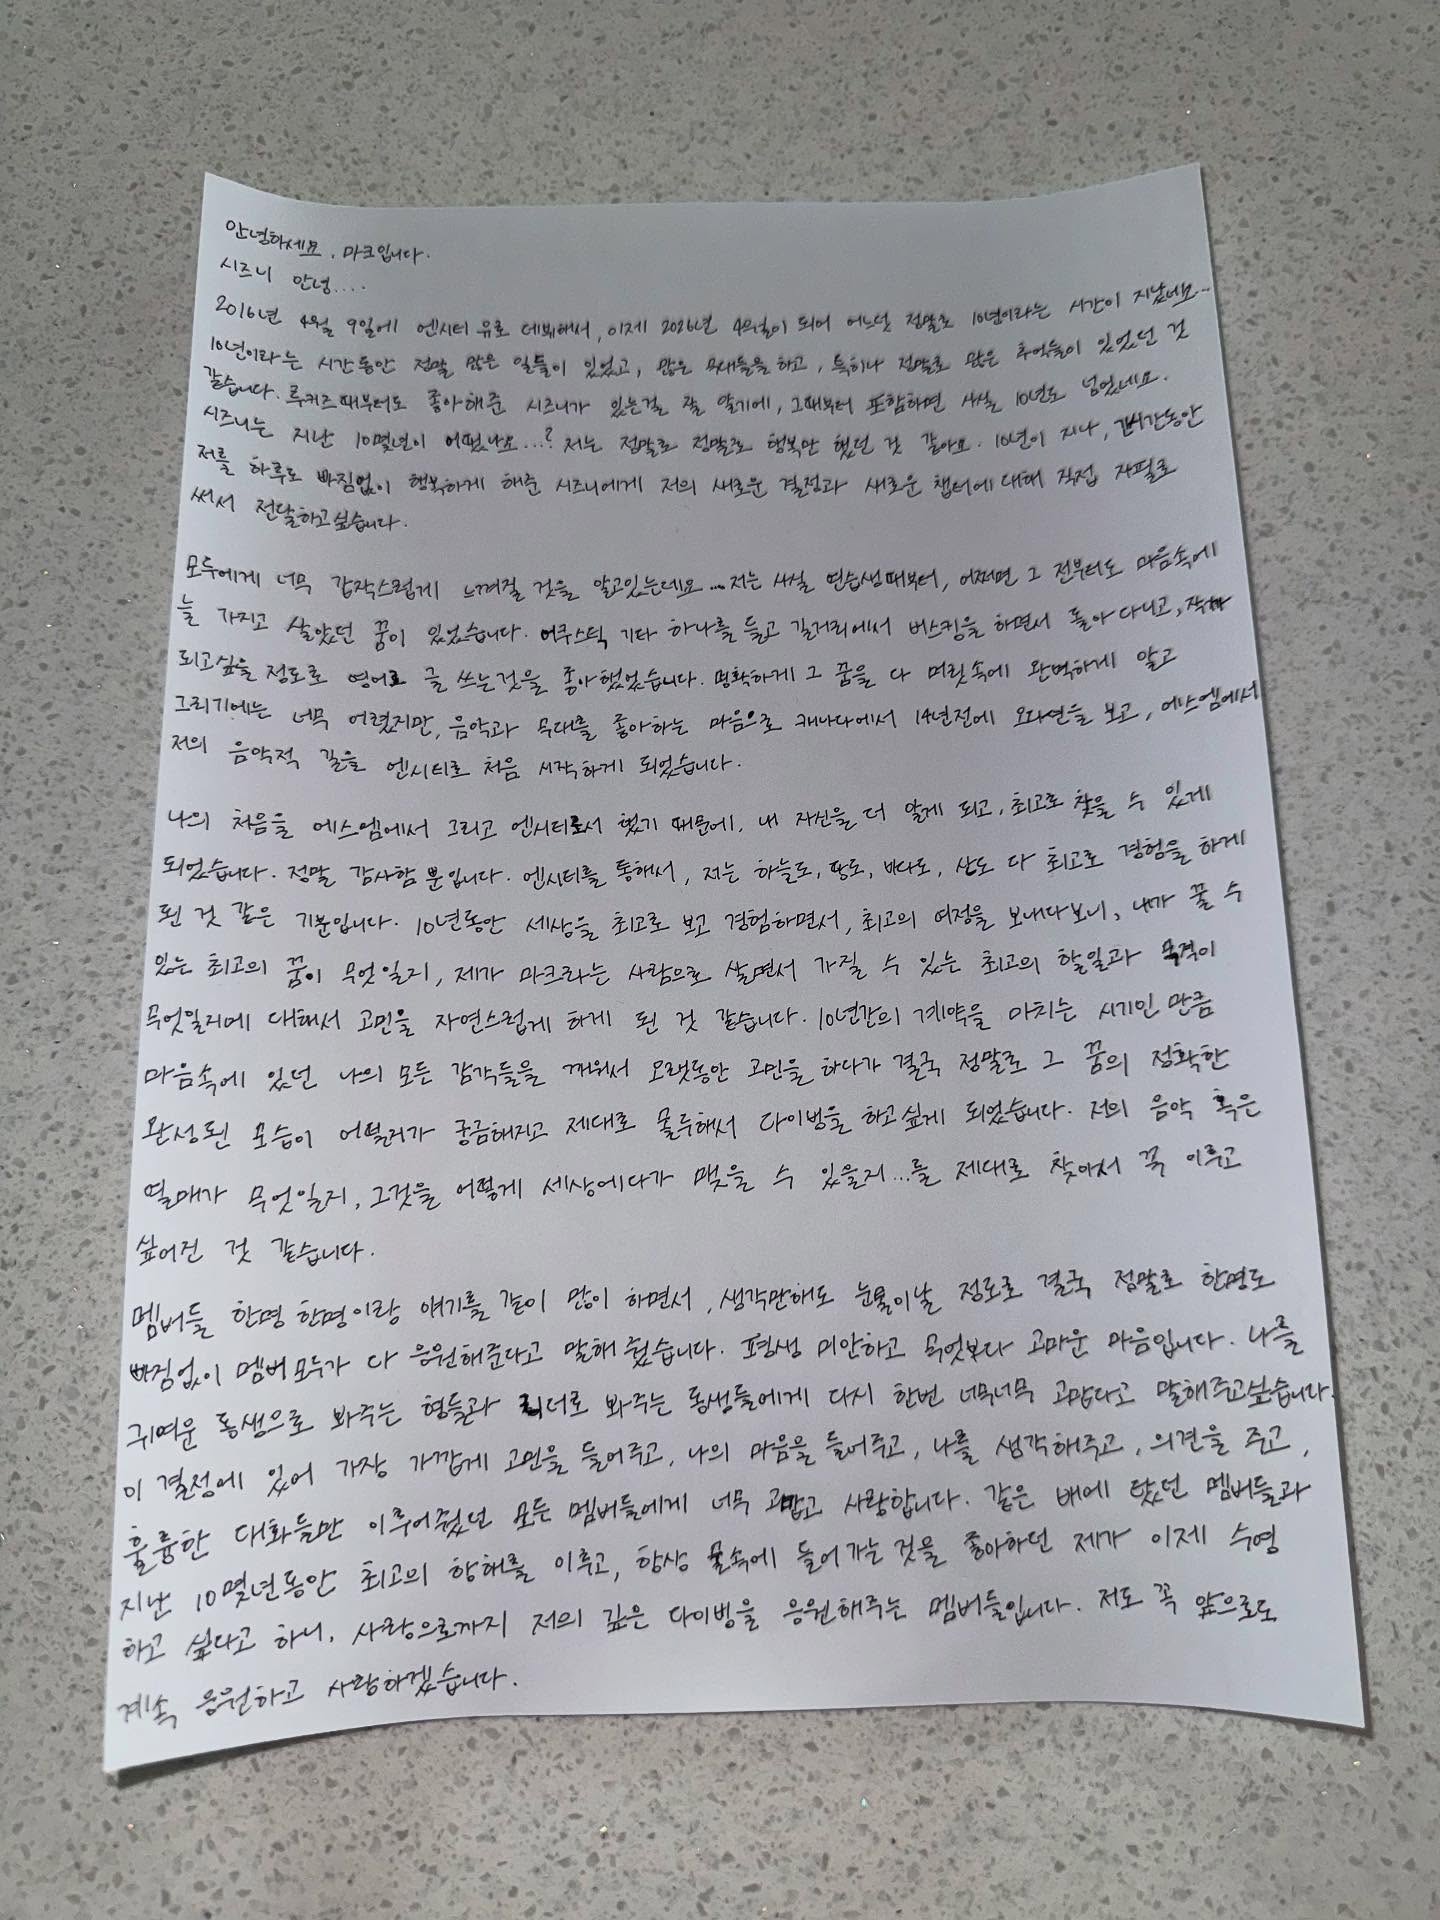 안녕하세요, 마크입니다.
시즈니 안녕....
2016년 4월 9일에 엔시티 유로 데뷔해서, 이제 2026년 4월이 되어 어느덧 정말로 10년이라는 시간이 지났네요...
10년이라는 시간동안 정말 많은 일들이 있었고, 많은 무대들을 하고, 특히나 정말로 많은 추억들이 있었던 것
같습니다. 루키즈때부터도 좋아해준 시즈니가 있는걸 잘 알기에, 그때부터 포함하면 사실 10년도 넘었네요.
시즈니는 지난 10몇년이 어땠나요...? 저는 정말로 정말로 행복만 했던 것 같아요. 10년이 지나, 긴시간동안
저를 하루도 빠짐없이 행복하게 해준 시즈니에게 저의 새로운 결정과 새로운 챕터에 대해 직접 자필로
써서 전달하고싶습니다.
모두에게 너무 갑작스럽게 느껴질 것을 알고있는데요... 저는 사실 연습생때부터, 어쩌면 그 전부터도 마음속에
늘 가지고 살았던 꿈이 있었습니다. 어쿠스틱 기타 하나를 들고 길거리에서 버스킹을 하면서 돌아다니고, 작가
되고싶을 정도로 영어로 글 쓰는것을 좋아했었습니다. 명확하게 그 꿈을 다 머릿속에 완벽하게 알고
그리기에는 너무 어렸지만, 음악과 무대를 좋아하는 마음으로 캐나다에서 14년전에 오디션을 보고, 에스엠에서
저의 음악적 길을 엔시티로 처음 시작하게 되었습니다.
나의 처음을 에스엠에서 그리고 엔시티로서 했기 때문에, 내 자신을 더 알게 되고, 최고로 찾을 수 있게
되었습니다. 정말 감사함 뿐입니다. 엔시티를 통해서, 저는 하늘도, 땅도, 바다도, 산도 다 최고로 경험을 하게
된 것 같은 기분입니다. 10년동안 세상을 최고로 보고 경험하면서, 최고의 여정을 보내다보니, 내가 꿀 수
있는 최고의 꿈이 무엇일지, 제가 마크라는 사람으로 살면서 가질 수 있는 최고의 할일과 목적이
무엇일지에 대해서 고민을 자연스럽게 하게 된 것 같습니다. 10년간의 계약을 마치는 시기인 만큼
마음속에 있던 나의 모든 감각들을 깨워서 오랫동안 고민을 하다가 결국 정말로 그 꿈의 정확한
완성된 모습이 어떨지가 궁금해지고 제대로 몰두해서 다이빙을 하고싶게 되었습니다. 저의 음악 혹은
열매가 무엇일지, 그것을 어떻게 세상에다가 맺을 수 있을지...를 제대로 찾아서 꼭 이루고
싶어진 것 같습니다.
멤버들 한명 한명이랑 얘기를 같이 많이 하면서, 생각만해도 눈물이날 정도로 결국 정말로 한명도
빠짐없이 멤버모두가 다 응원해준다고 말해 줬습니다. 평생 미안하고 무엇보다 고마운 마음입니다. 나를
귀여운 동생으로 봐주는 형들과 리더로 봐주는 동생들에게 다시 한번 너무너무 고맙다고 말해주고싶습니다.
이 결정에 있어 가장 가깝게 고민을 들어주고, 나의 마음을 들어주고, 나를 생각해주고, 의견을 주고,
훌륭한 대화들만 이루어줬던 모든 멤버들에게 너무 고맙고 사랑합니다. 같은 배에 탔던 멤버들과
지난 10몇년동안 최고의 항해를 이루고, 항상 물속에 들어가는것을 좋아하던 제가 이제 수영
하고 싶다고 하니, 사랑으로까지 저의 깊은 다이빙을 응원해주는 멤버들입니다. 저도 꼭 앞으로도
계속 응원하고 사랑하겠습니다.